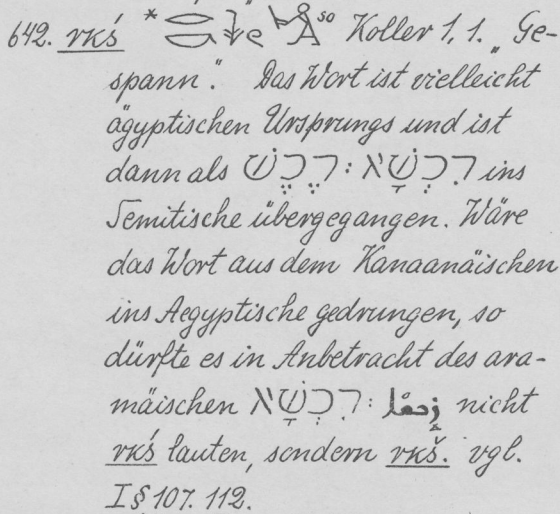 642. rkś * so Koller 1,1. „Ge-
spann." Das Wort ist vielleicht
ägyptischen Ursprungs und ist
dann als רִכְשָׁא : רֶכֶשׁ ins
Semitische übergegangen. Wäre
das Wort aus dem Kanaanäischen
ins Aegyptische gedrungen, so
dürfte es in Anbetracht des ara-
mäischen ܪܟܫܐ : רִכְשָׁא nicht
rkś lauten, sondern rkš. vgl.
I § 107. 112.